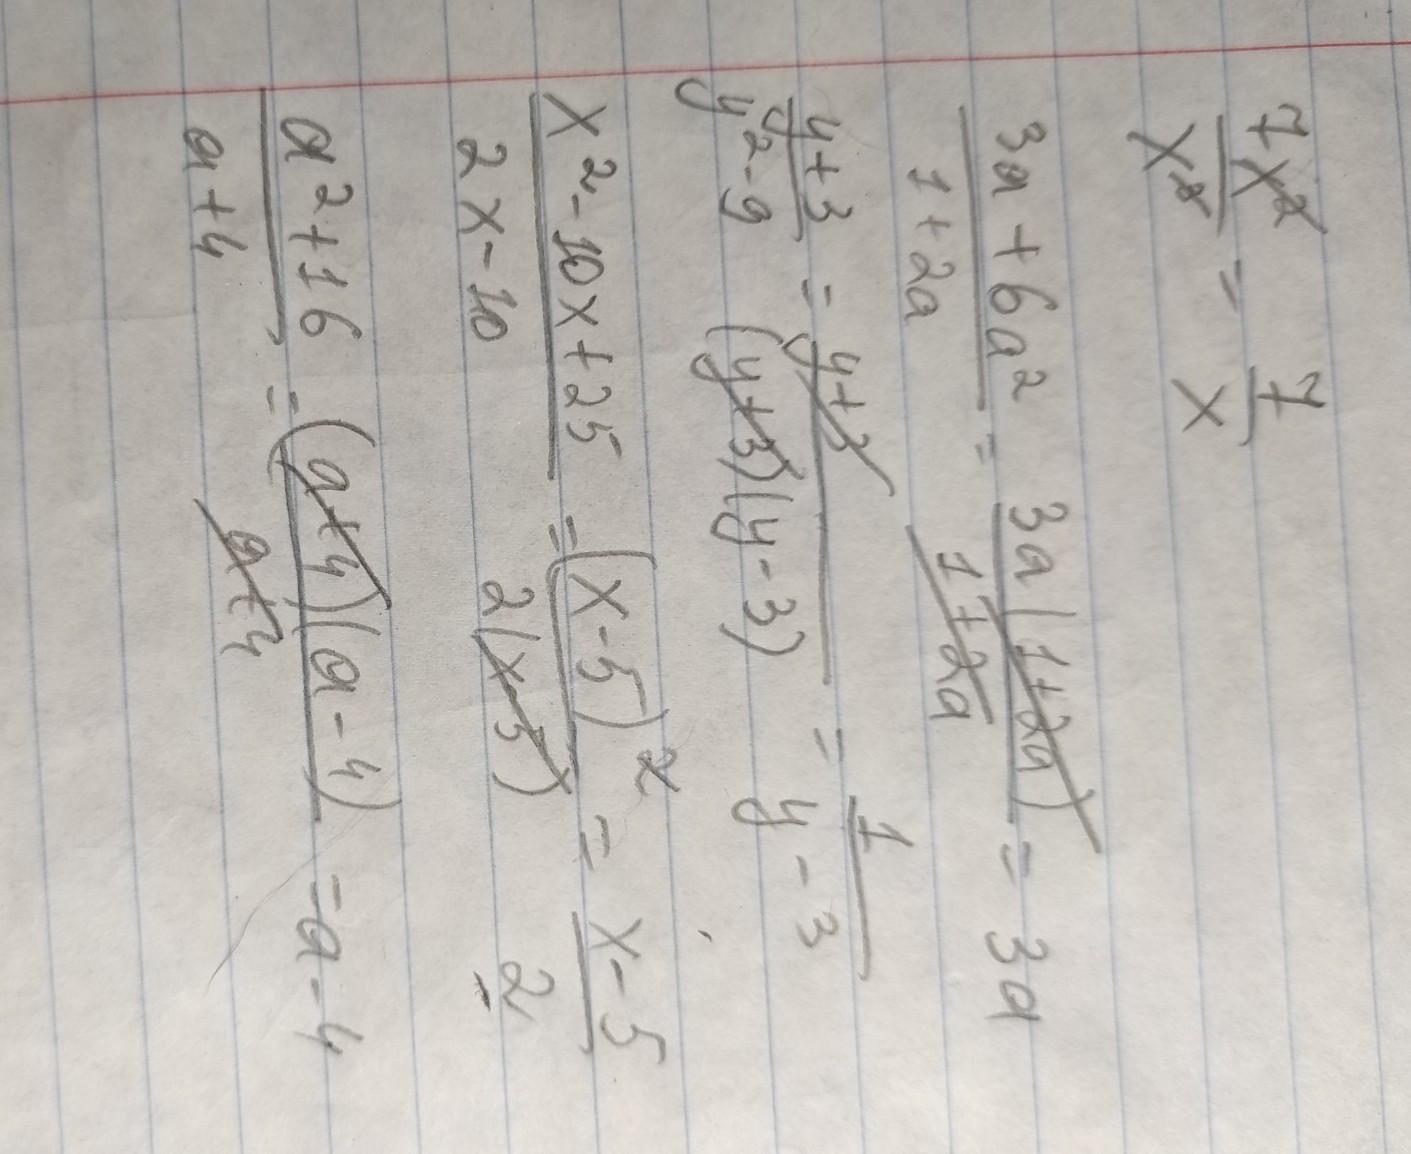 7x²/x³ = 7/x
(3a+6a²)/(1+2a) = 3a(1+2a)/(1+2a) = 3a
(y+3)/(y²-9) = (y+3)/((y+3)(y-3)) = 1/(y-3)
(x²-10x+25)/(2x-10) = (x-5)²/(2(x-5)) = (x-5)/2
(a²+16)/(a+4) = (a+4)(a-4)/(a+4) = a-4